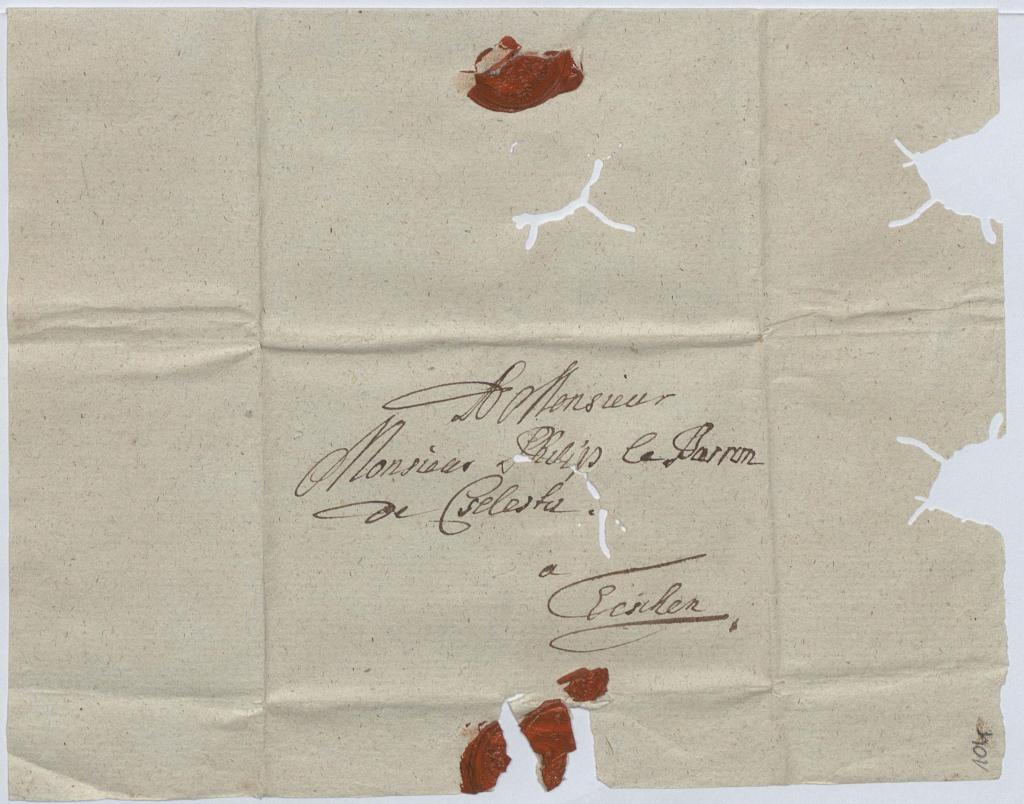 A Monsieur
Monsieur Philip le Barron
de Cselesta.
a
Teschen.
104